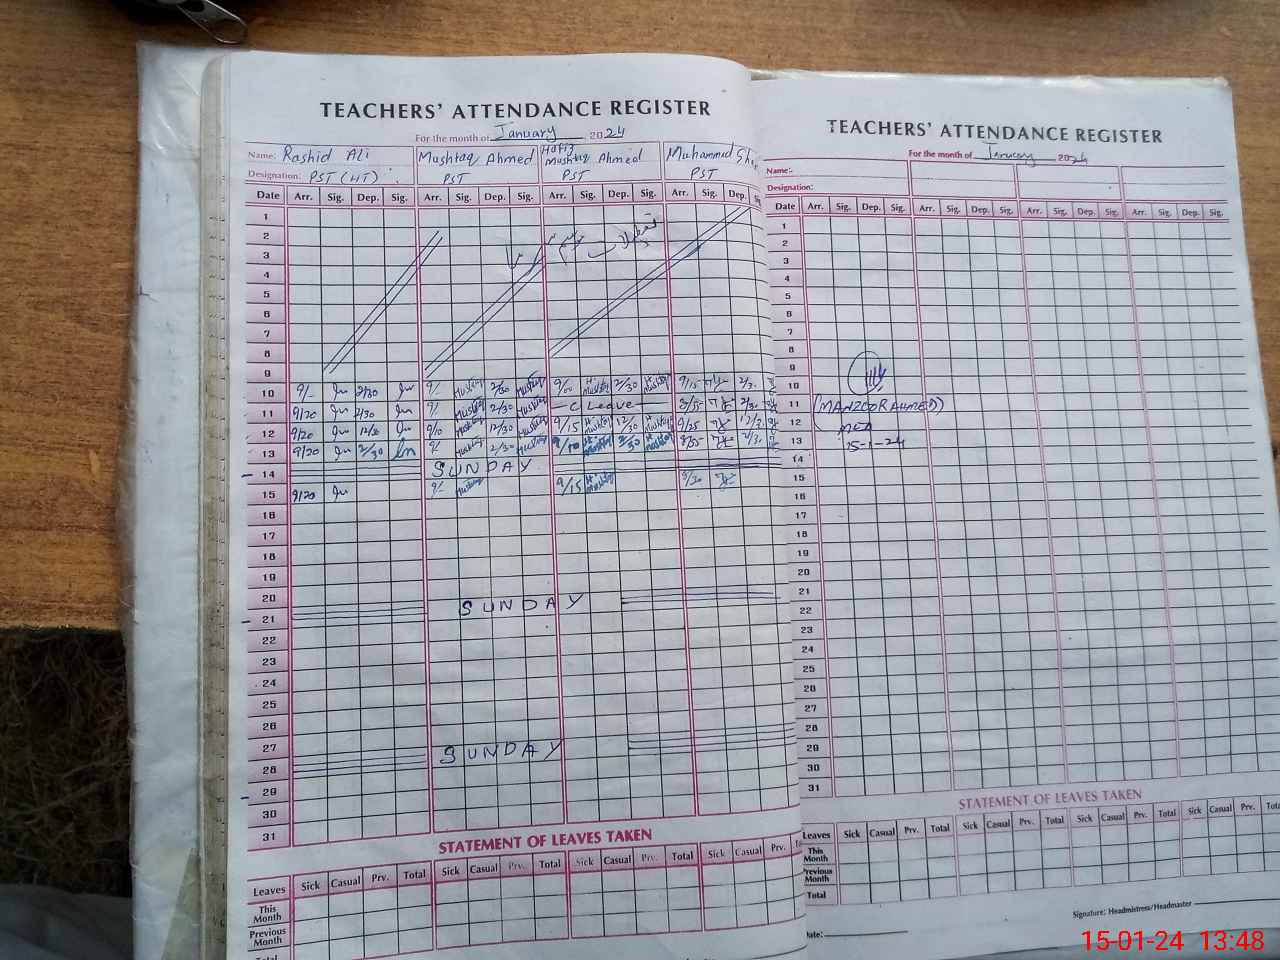 TEACHERS' ATTENDANCE REGISTER
For the month of January 2024
Name: Rashid Ali Mushtaq Ahmed Hafiz Mushtaq Ahmed Muhammad
Designation: PST (HT) PST PST PST
Date Arr. Sig. Dep. Sig. Arr. Sig. Dep. Sig. Arr. Sig. Dep. Sig. Arr. Sig. Dep.
1
2
3
4
5
6
7
8
9
10 9/- 2/30 9/- 2/30 9/00 2/30 9/15 2/30
11 9/20 2/30 9/- 2/30 C Leave
12 9/20 12/30 9/10 12/30 9/15 12/30 9/25
13 9/20 2/30 9/- 2/30 9/10 2/30
14 SUNDAY
15 9/20 9/- 9/15
16
17
18
19
20
21 SUNDAY
22
23
24
25
26
27
28 SUNDAY
29
30
31
STATEMENT OF LEAVES TAKEN
Leaves Sick Casual Prv. Total Sick Casual Prv. Total Sick Casual Prv. Total Sick Casual Prv.
This Month
Previous Month
Total
TEACHERS' ATTENDANCE REGISTER
For the month of January 2024
Name:-
Designation:
Date Arr. Sig. Dep. Sig. Arr. Sig. Dep. Sig. Arr. Sig. Dep. Sig. Arr. Sig. Dep. Sig.
1
2
3
4
5
6
7
8
9
10
11 (MANZOOR AHMED)
12 MEA
13 15-1-24
14
15
16
17
18
19
20
21
22
23
24
25
26
27
28
29
30
31
STATEMENT OF LEAVES TAKEN
Leaves Sick Casual Prv. Total Sick Casual Prv. Total Sick Casual Prv. Total Sick Casual Prv. Total
This Month
Previous Month
Total
Signature: Headmistress/Headmaster
Date:
15-01-24 13:48